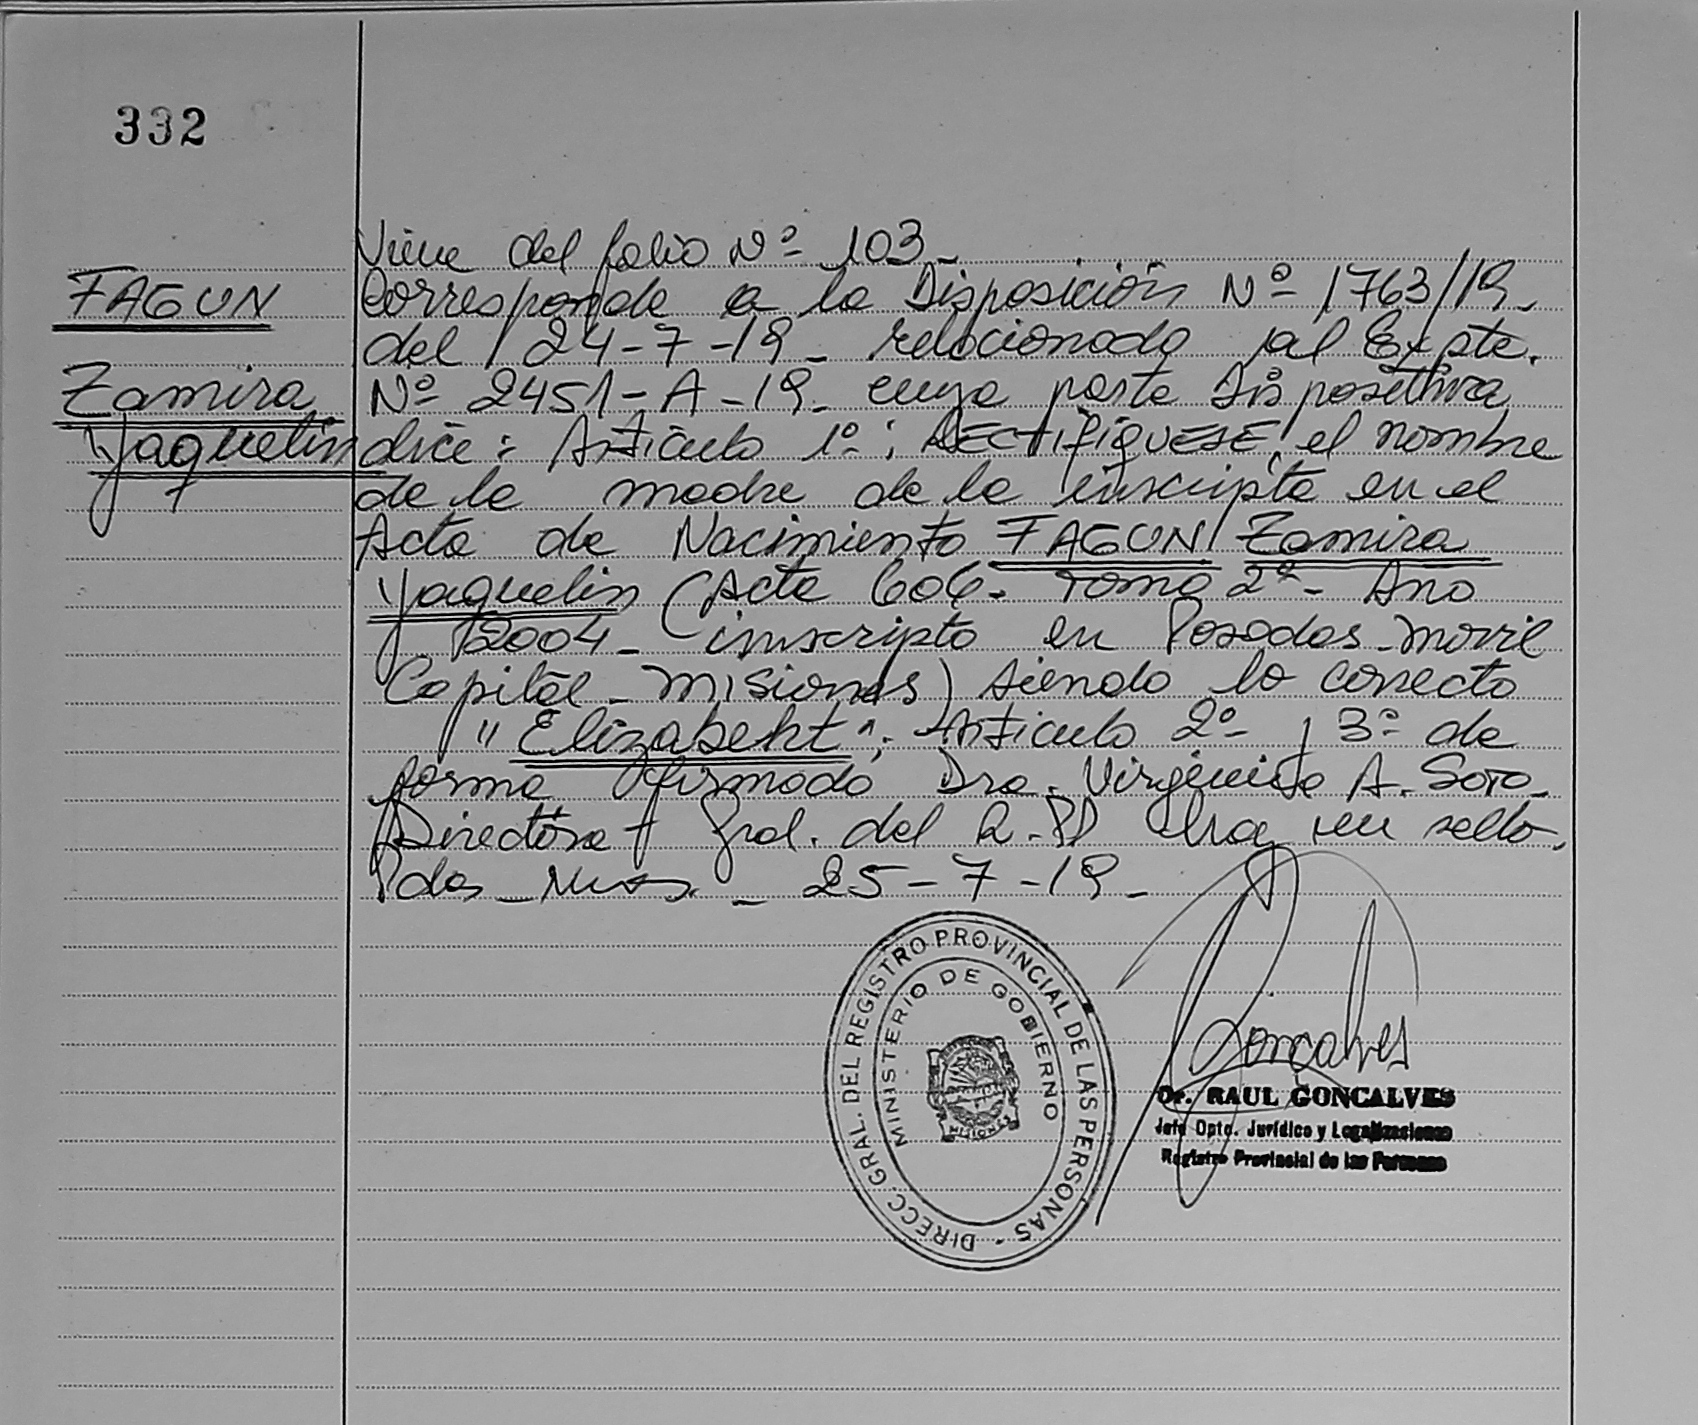 332
FAGUN
Zamira
Yaquelin
Viene del folio Nº 103_
Corresponde a la Disposición Nº 1763/19_
del 24-7-19_ relacionado al Expte.
Nº 2451-A-19_ cuya parte Dispositiva
dice: Artículo 1º: RECTIFIQUESE, el nombre
de la madre de la inscripta en el
Acta de Nacimiento FAGUN Zamira
Yaquelin (Acta 606- Tomo 2º- Año
2004_ inscripto en Posadas movil
Capital_ Misiones) siendo lo correcto
"Elizabeht"; Artículo 2º y 3º de
forma firmado Dra. Virginia A. Soto_
Directora Gral. del R.PP Hay un sello.
Pdas_ Mnes_ 25-7-19_
DIRECC. GRAL. DEL REGISTRO PROVINCIAL DE LAS PERSONAS -
MINISTERIO DE GOBIERNO
MISIONES
Goncalves
Dr. RAUL GONCALVES
Jefe Dpto. Jurídico y Legalizaciones
Registro Provincial de las Personas